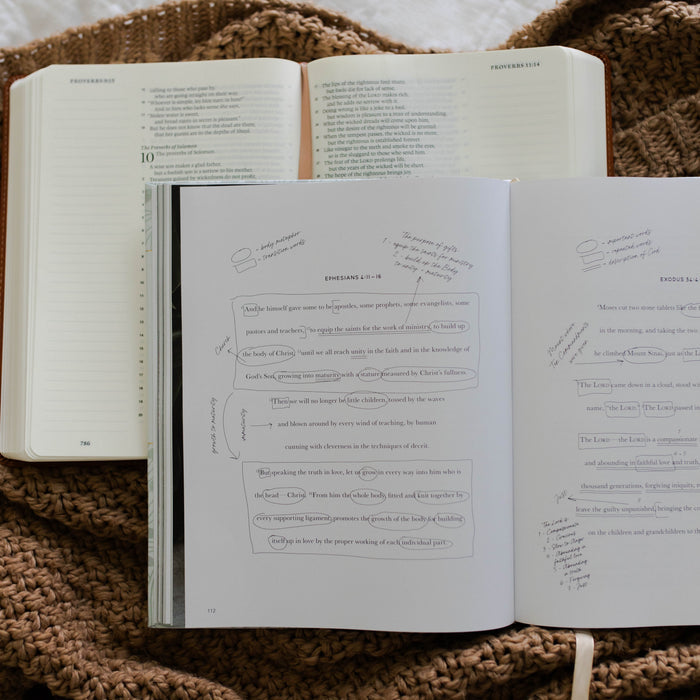 PROVERBS 9:15
calling to those who pass by,
who are going straight on their way,
"Whoever is simple, let him turn in here!"
And to him who lacks sense she says,
"Stolen water is sweet,
and bread eaten in secret is pleasant."
But he does not know that the dead are there,
that her guests are in the depths of Sheol.
The Proverbs of Solomon
10 The proverbs of Solomon.
A wise son makes a glad father,
but a foolish son is a sorrow to his mother.
Treasures gained by wickedness do not profit,
786
PROVERBS 11:14
The lips of the righteous feed many,
but fools die for lack of sense.
The blessing of the LORD makes rich,
and he adds no sorrow with it.
Doing wrong is like a joke to a fool,
but wisdom is pleasure to a man of understanding.
What the wicked dreads will come upon him,
but the desire of the righteous will be granted.
When the tempest passes, the wicked is no more,
but the righteous is established forever.
Like vinegar to the teeth and smoke to the eyes,
so is the sluggard to those who send him.
The fear of the LORD prolongs life,
but the years of the wicked will be short.
The hope of the righteous brings joy,
- body metaphor
- transition words
The purpose of gifts
1 - equip the saints for ministry
2 - build up the Body
to unity + maturity
EPHESIANS 4:11–16
And he himself gave some to be apostles, some prophets, some evangelists, some
pastors and teachers, to equip the saints for the work of ministry, to build up
the body of Christ, until we all reach unity in the faith and in the knowledge of
God's Son, growing into maturity with a stature measured by Christ's fullness.
Church
Then we will no longer be little children, tossed by the waves
and blown around by every wind of teaching, by human
cunning with cleverness in the techniques of deceit.
growth to maturity
immaturity
But speaking the truth in love, let us grow in every way into him who is
the head—Christ. From him the whole body, fitted and knit together by
every supporting ligament, promotes the growth of the body for building
itself up in love by the proper working of each individual part.
112
- important words
- repeated words
- description of God
EXODUS 34:4
Moses cut two stone tablets like the
in the morning, and taking the two
he climbed Mount Sinai, just as the
The LORD came down in a cloud, stood
name, "the LORD." The LORD passed in
The LORD—the LORD is a compassionate
and abounding in faithful love and truth,
thousand generations, forgiving iniquity,
leave the guilty unpunished, bringing the
on the children and grandchildren to the
Just
The Lord is
1 - Compassionate
2 - Gracious
3 - Slow to Anger
4 - Abounding in
faithful love
5 - Abounding
in truth
6 - Forgiving
7 - Just